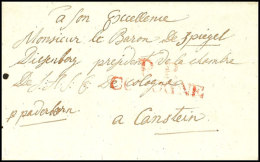 a Son Excellence
Monsieur le Baron De Spiegel
Diesenberg president de la chambre
De S. A. S. E. De Cologne
p paderborn
a Canstein